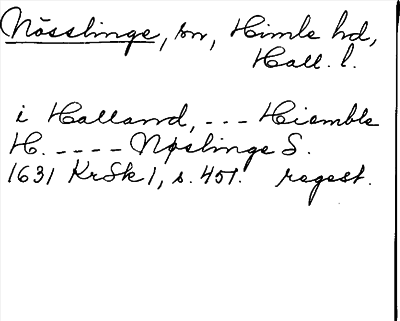 Nösslinge, sn, Himle hd,
Hall. l.
i Halland, --- Hiemble
H. ---- Nøslinge S.
1631 KrSk 1, s. 451. regest.